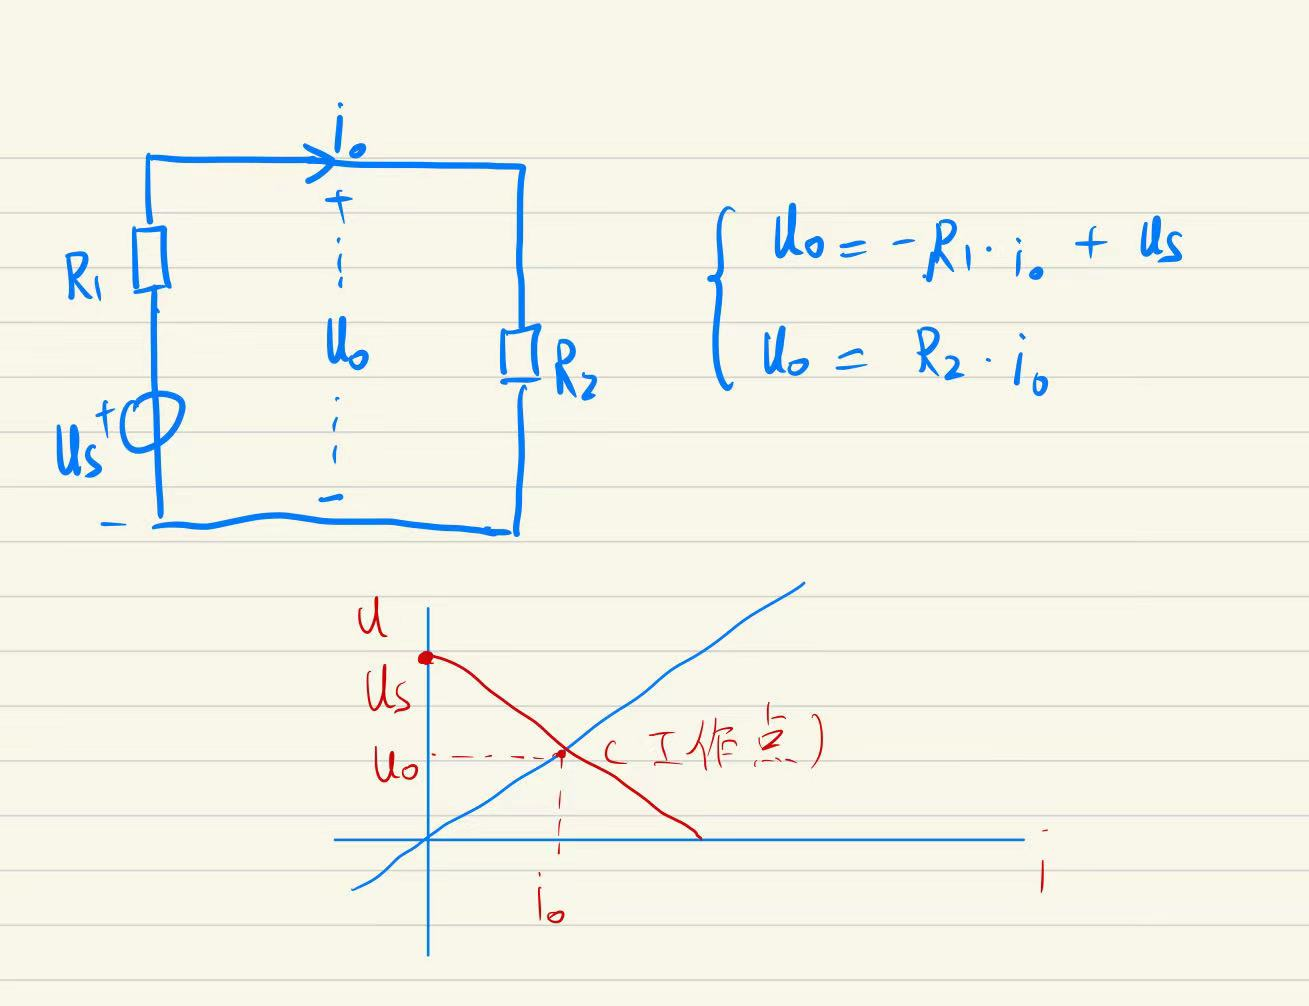 i₀
+
R₁
U₀
R₂
+
Us
-
-
U₀ = -R₁·i₀ + Us
U₀ = R₂·i₀
U
Us
U₀
(工作点)
i
i₀